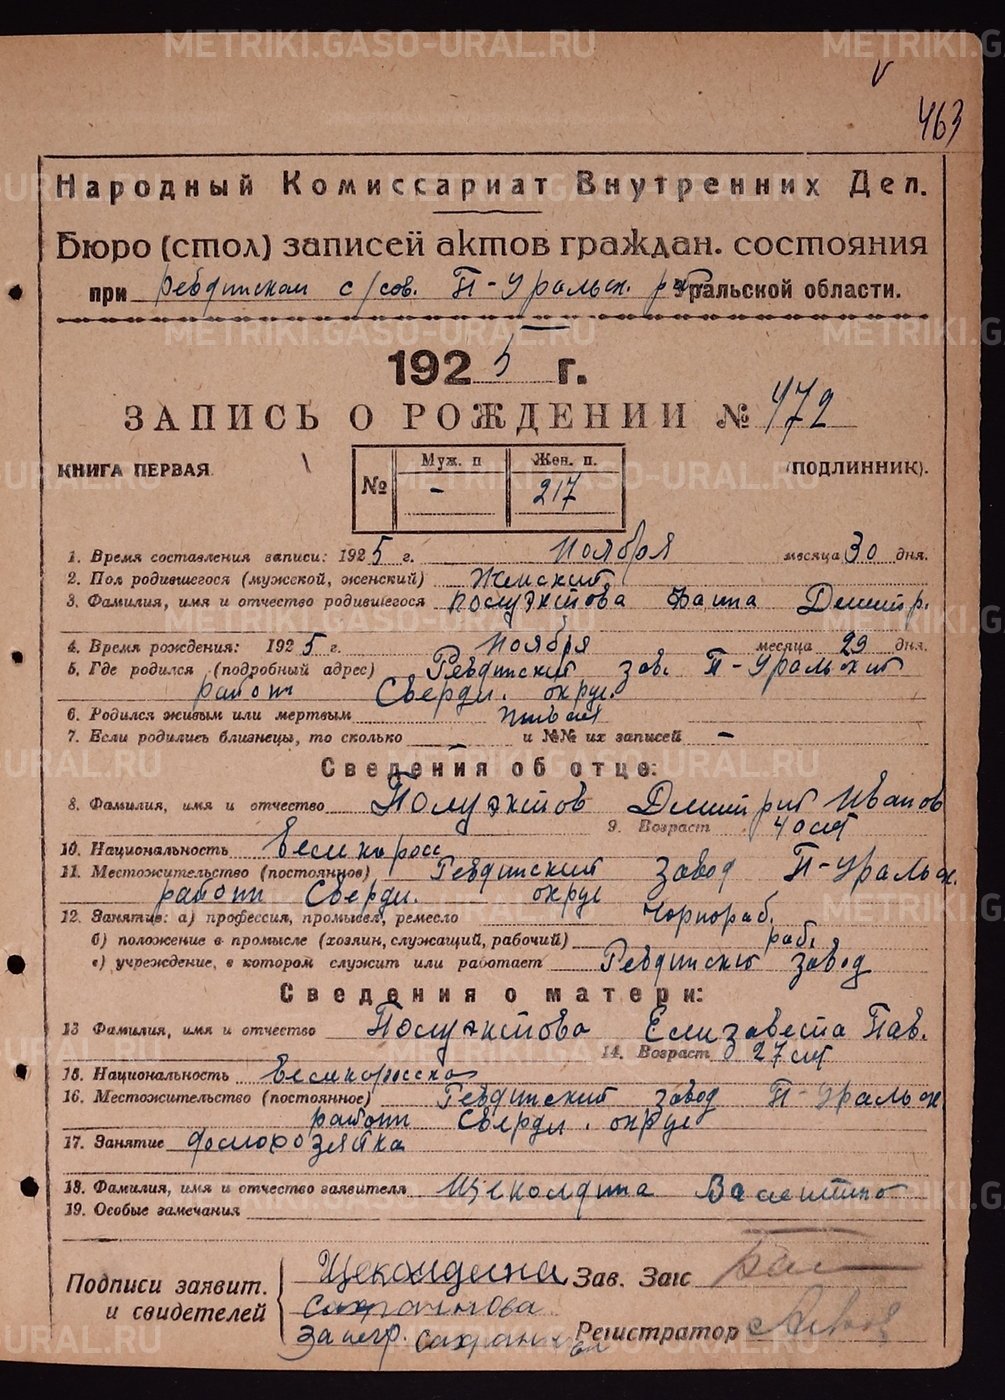 METRIKI.GASO-URAL.RU
463
Народный Комиссариат Внутренних Дел.
Бюро (стол) записей актов граждан. состояния
при Ревдинском с/сов. П-Уральск. Уральской области.
1925 г.
ЗАПИСЬ О РОЖДЕНИИ № 472
КНИГА ПЕРВАЯ (ПОДЛИННИК).
№ Муж. п Жен. п.
- 217
1. Время составления записи: 1925 г. Ноября месяца 30 дня.
2. Пол родившегося (мужской, женский) Женский
3. Фамилия, имя и отчество родившегося Полуэктова Фаина Дмитр.
4. Время рождения: 1925 г. Ноября месяца 29 дня.
5. Где родился (подробный адрес) Ревдинский зав. П-Уральский
район Свердл. округ
6. Родился живым или мертвым живой
7. Если родились близнецы, то сколько - и №№ их записей -
Сведения об отце:
8. Фамилия, имя и отчество Полуэктов Дмитрий Иванов
9. Возраст 40 лет
10. Национальность великоросс
11. Местожительство (постоянное) Ревдинский завод П-Уральск.
район Свердл. округ
12. Занятие: а) профессия, промысел, ремесло чорнораб.
б) положение в промысле (хозяин, служащий, рабочий) раб.
в) учреждение, в котором служит или работает Ревдинский завод
Сведения о матери:
13 Фамилия, имя и отчество Полуэктова Елизавета Пав.
14. Возраст 27 лет
15. Национальность великоросска
16. Местожительство (постоянное) Ревдинский завод П-Уральск
район Свердл. округ
17. Занятие домохозяйка
18. Фамилия, имя и отчество заявителя Щеколдина Валентина
19. Особые замечания
Подписи заявит. и свидетелей
Щеколдина Зав. Загс
за негр. Регистратор